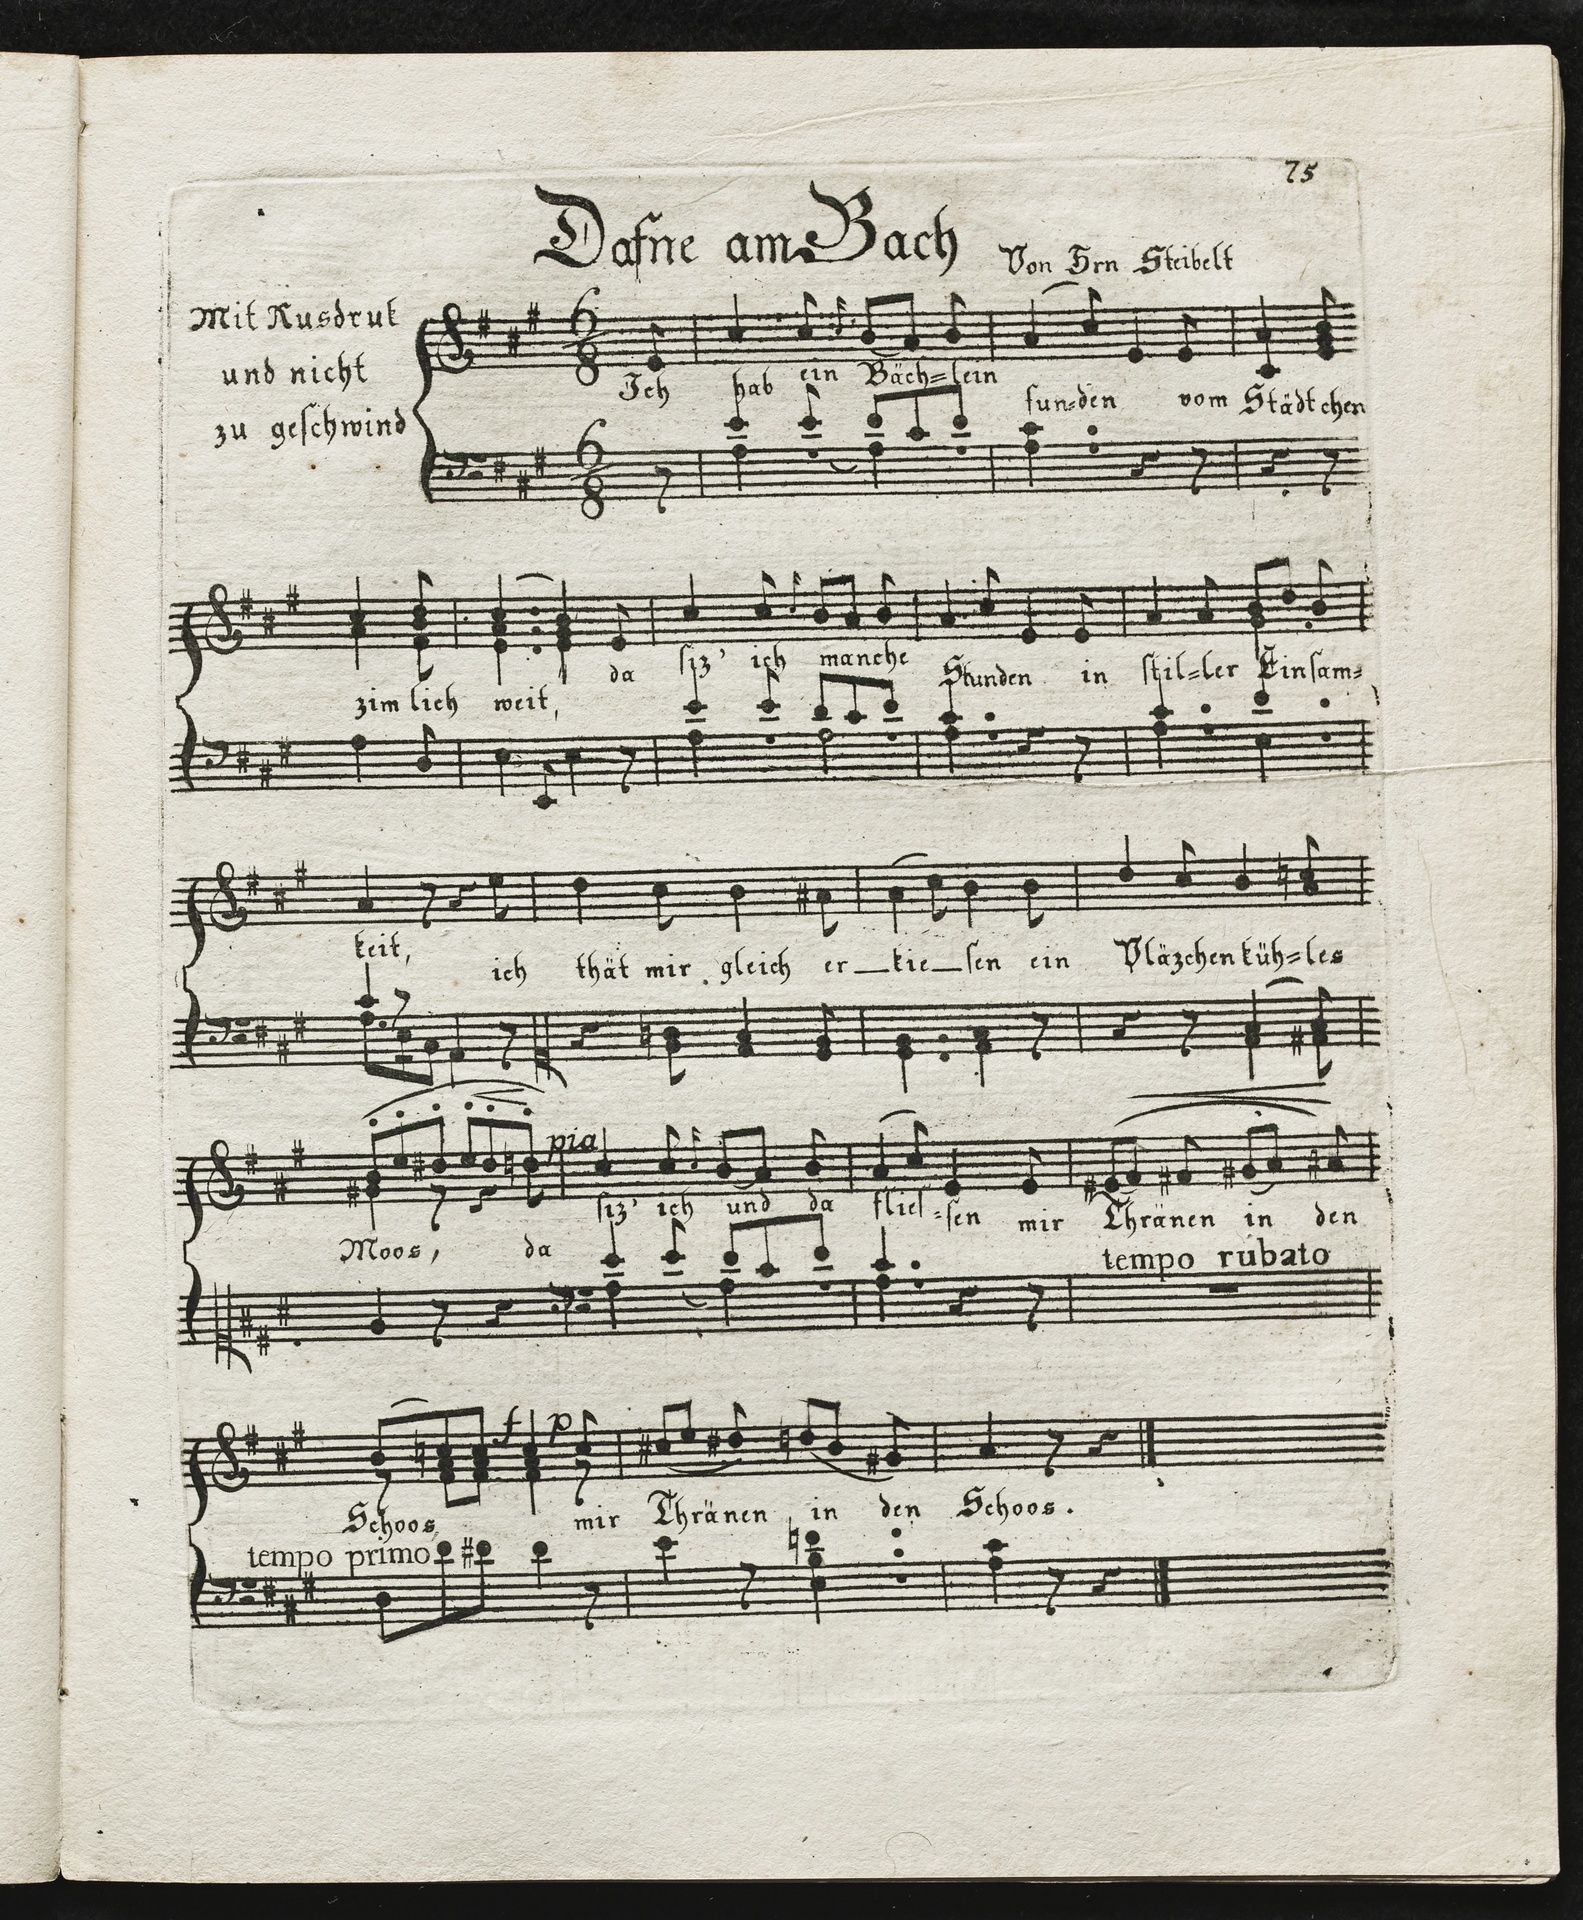 75
Dafne am Bach
Von Hrn Steibelt
Mit Ausdruk
und nicht
zu geſchwind
6
8
Ich hab ein Bäch=lein fun=den vom Städtchen
6
8
da ſiz' ich manche Stunden in ſtil=ler Einſam=
zim lich weit,
keit, ich thät mir gleich er—kie—ſen ein Pläzchen küh=les
pia
ſiz' ich und da flieſ=ſen mir Thränen in den
Moos, da
tempo rubato
f p
Schoos, mir Thränen in den Schoos.
tempo primo